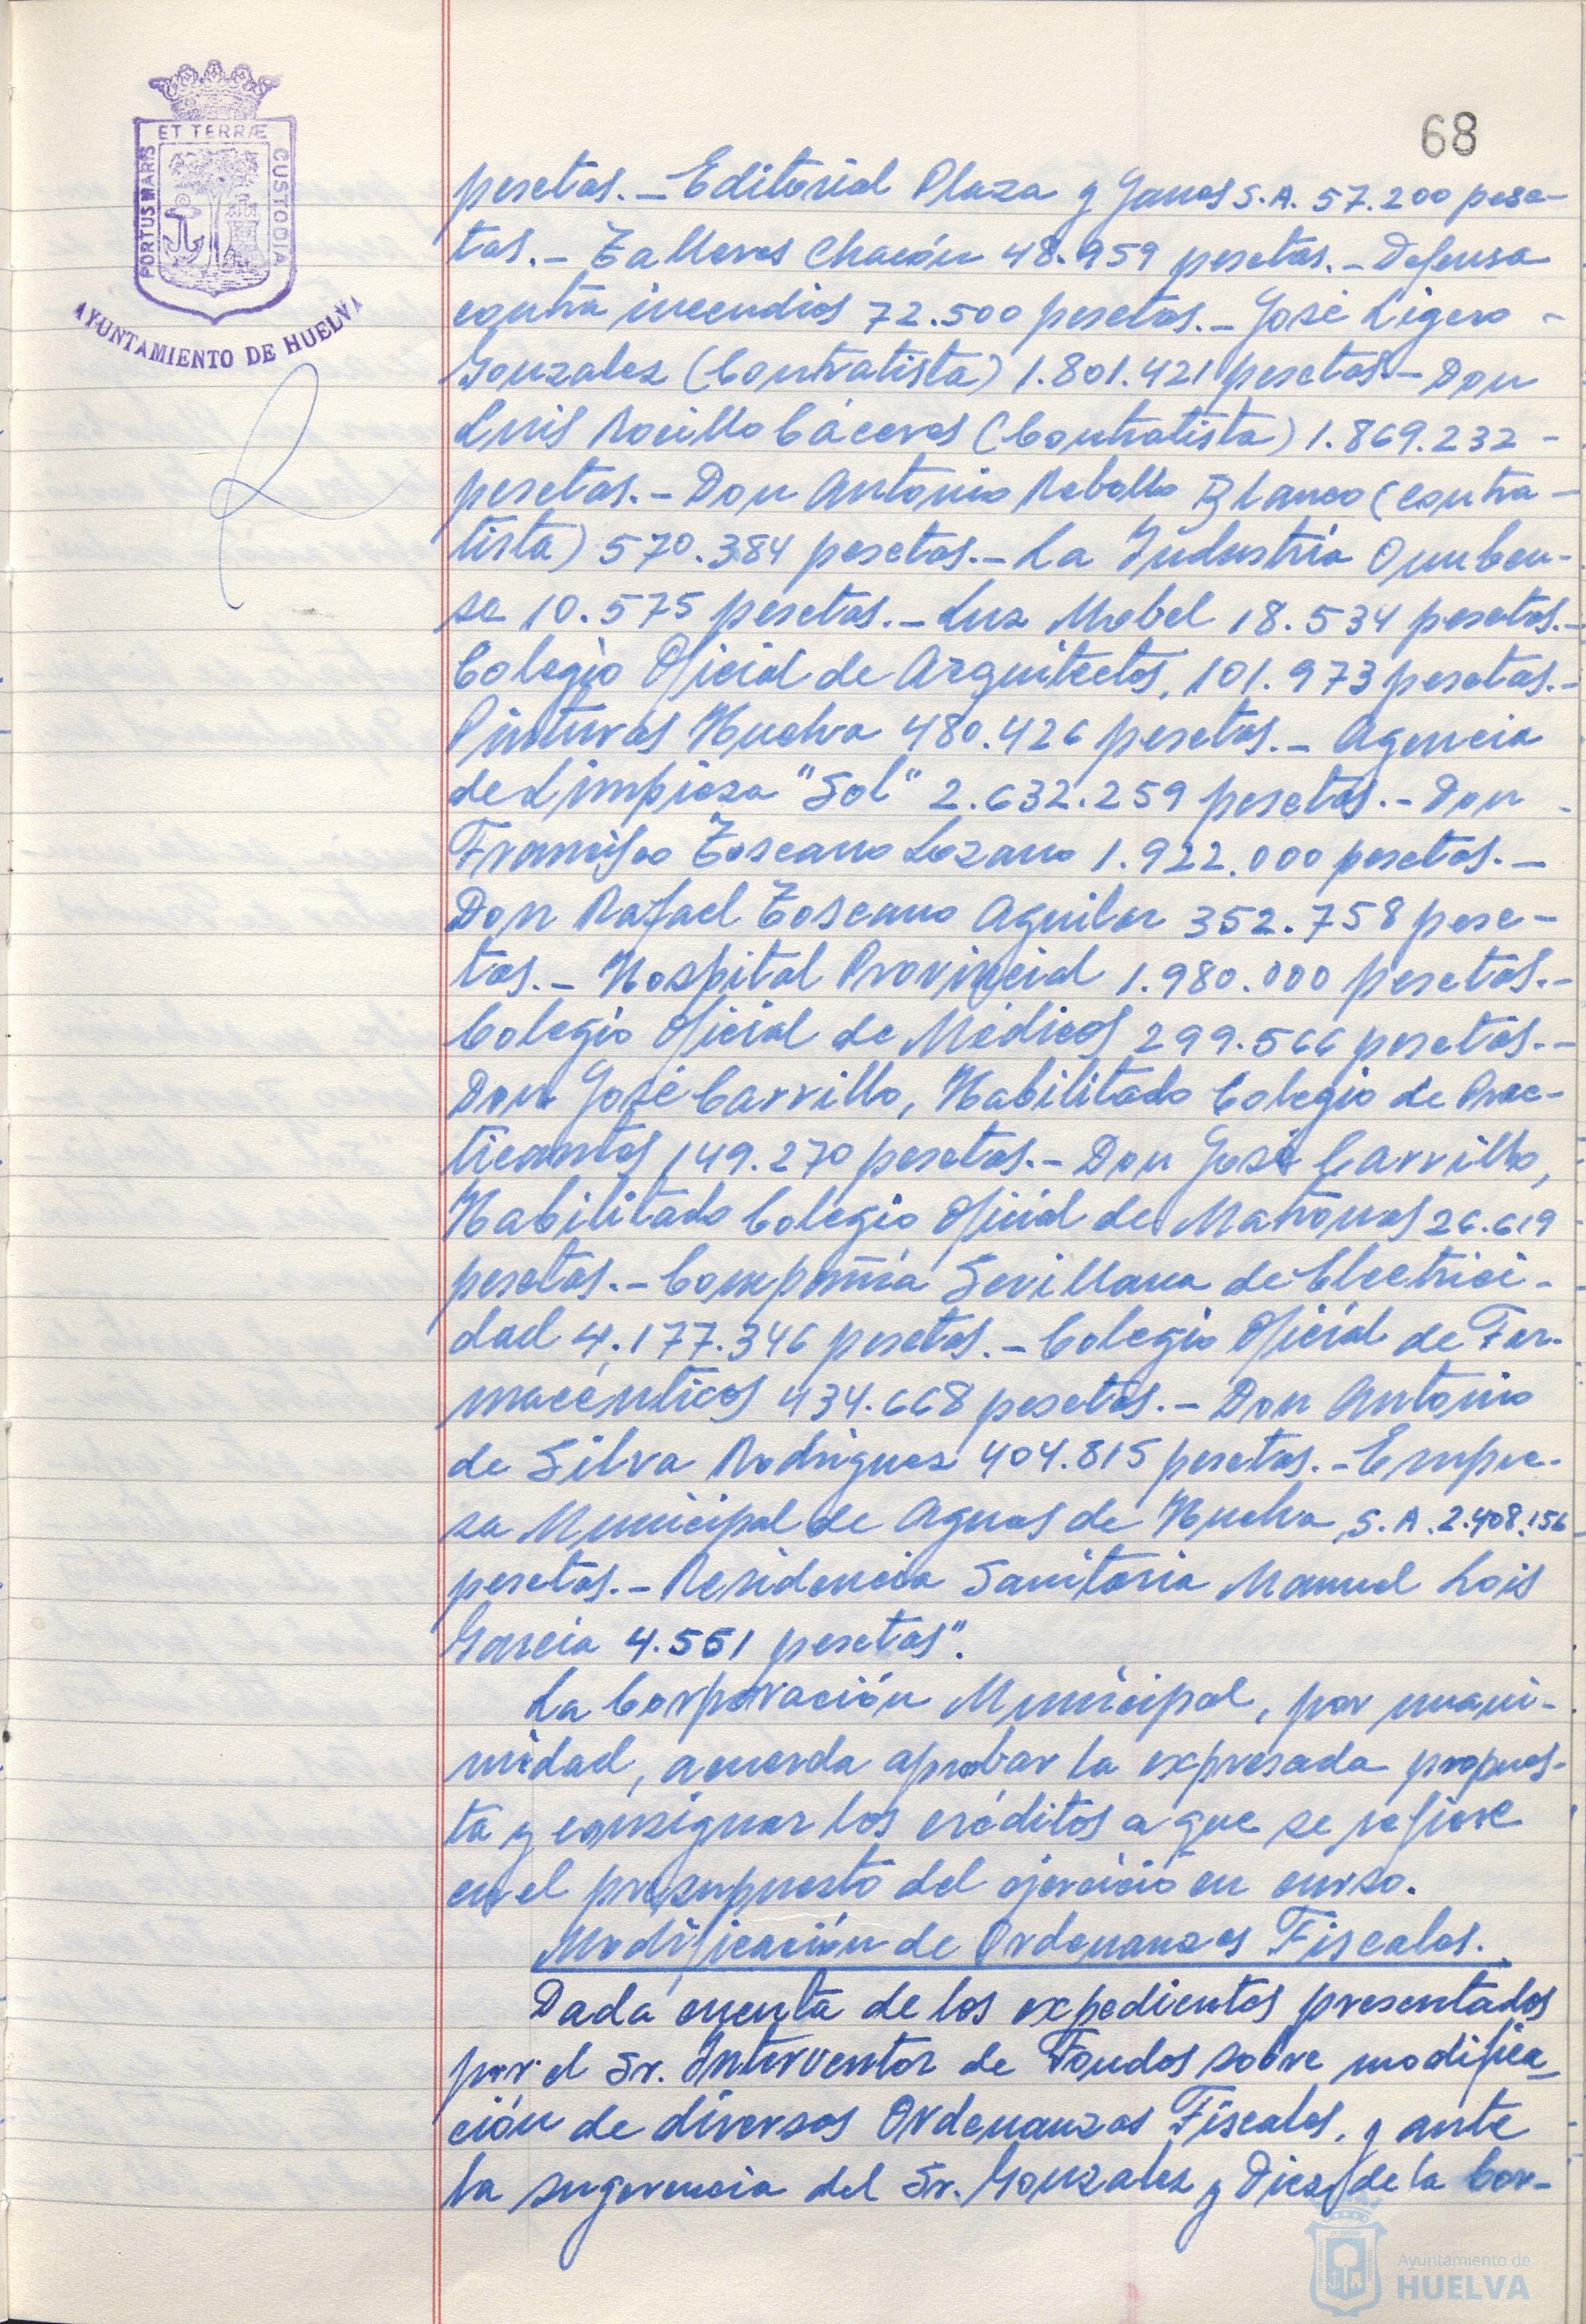 68
ET TERRÆ
PORTUS MARIS
CUSTODIA
AYUNTAMIENTO DE HUELVA
pesetas.- Editorial Plaza y Janes S.A. 57.200 pese-
tas.- Talleres Chacón 48.959 pesetas.- Defensa
contra incendios 72.500 pesetas.- José Ligero -
Gonzalez (Contratista) 1.801.421 pesetas.- Don
Luis Rocillo Cáceres (Contratista) 1.869.232 -
pesetas.- Don Antonio Rebollo Blanco (contra-
tista) 570.384 pesetas.- La Industria Onuben-
se 10.575 pesetas.- Luz Mobel 18.534 pesetas.-
Colegio Oficial de Arquitectos, 101.973 pesetas.-
Pinturas Huelva 480.426 pesetas.- Agencia
de Limpieza "Sol" 2.632.259 pesetas.- Don -
Francisco Toscano Lozano 1.922.000 pesetas.-
Don Rafael Toscano Aguilar 352.758 pese-
tas.- Hospital Provincial 1.980.000 pesetas.-
Colegio Oficial de Médicos 299.566 pesetas.-
Don José Carrillo, Habilitado Colegio de Prac-
ticantes 149.270 pesetas.- Don José Carrillo,
Habilitado Colegio Oficial de Matronas 26.619
pesetas.- Compañía Sevillana de Electrici-
dad 4.177.346 pesetas.- Colegio Oficial de Far-
macéuticos 434.668 pesetas.- Don Antonio
de Silva Rodriguez 404.815 pesetas.- Empre-
sa Municipal de Aguas de Huelva S.A. 2.408.156
pesetas.- Residencia Sanitaria Manuel Lois
Garcia 4.551 pesetas".
La Corporación Municipal, por unani-
midad, acuerda aprobar la expresada propues-
ta y consignar los créditos a que se refiere
en el presupuesto del ejercicio en curso.
Modificación de Ordenanzas Fiscales.
Dada cuenta de los expedientes presentados
por el Sr. Interventor de Fondos sobre modifica-
ción de diversas Ordenanzas Fiscales, y ante
la sugerencia del Sr. Gonzalez y Diez de la Cor-
Ayuntamiento de
HUELVA